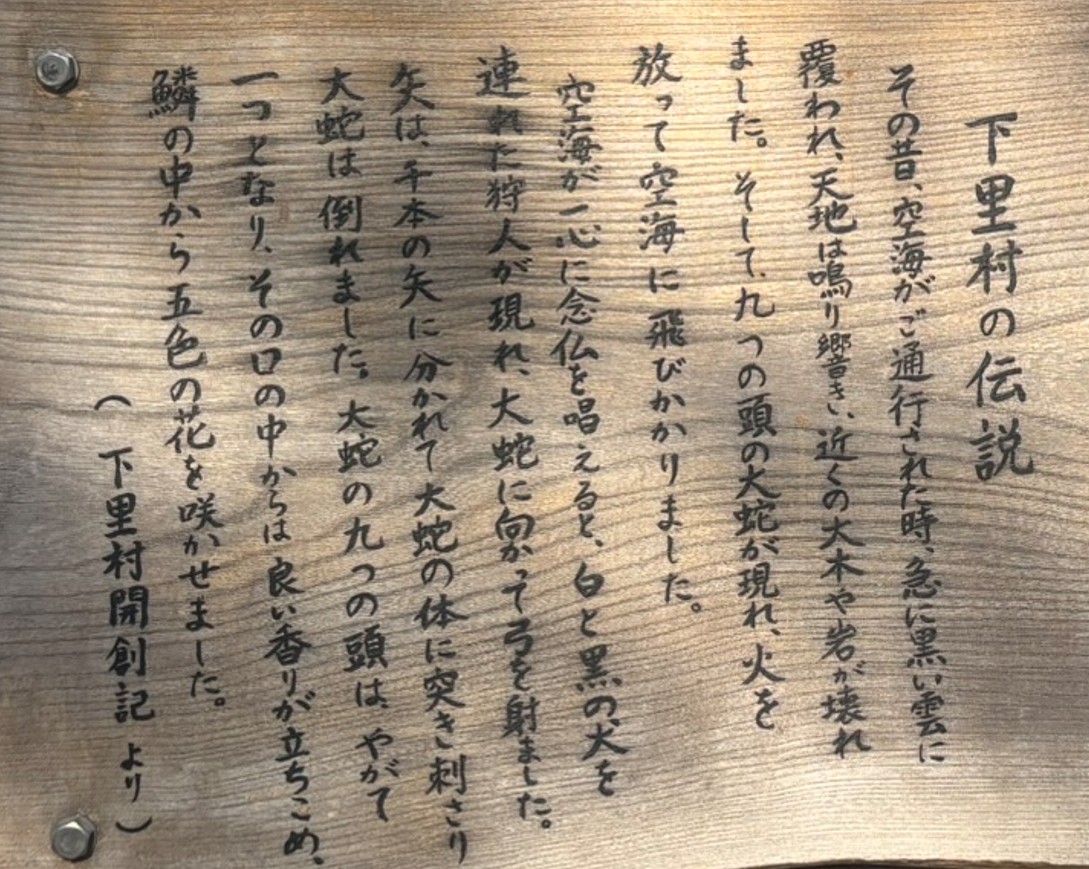 下里村の伝説
その昔、空海がご通行された時、急に黒い雲に
覆われ、天地は鳴り響き、近くの大木や岩が壊れ
ました。そして、九つの頭の大蛇が現れ、火を
放って空海に飛びかかりました。
空海が一心に念仏を唱えると、白と黒の犬を
連れた狩人が現れ、大蛇に向かって弓を射ました。
矢は、千本の矢に分かれて大蛇の体に突き刺さり
大蛇は倒れました。大蛇の九つの頭は、やがて
一つとなり、その口の中からは良い香りが立ちこめ、
鱗の中から五色の花を咲かせました。
（下里村開創記より）